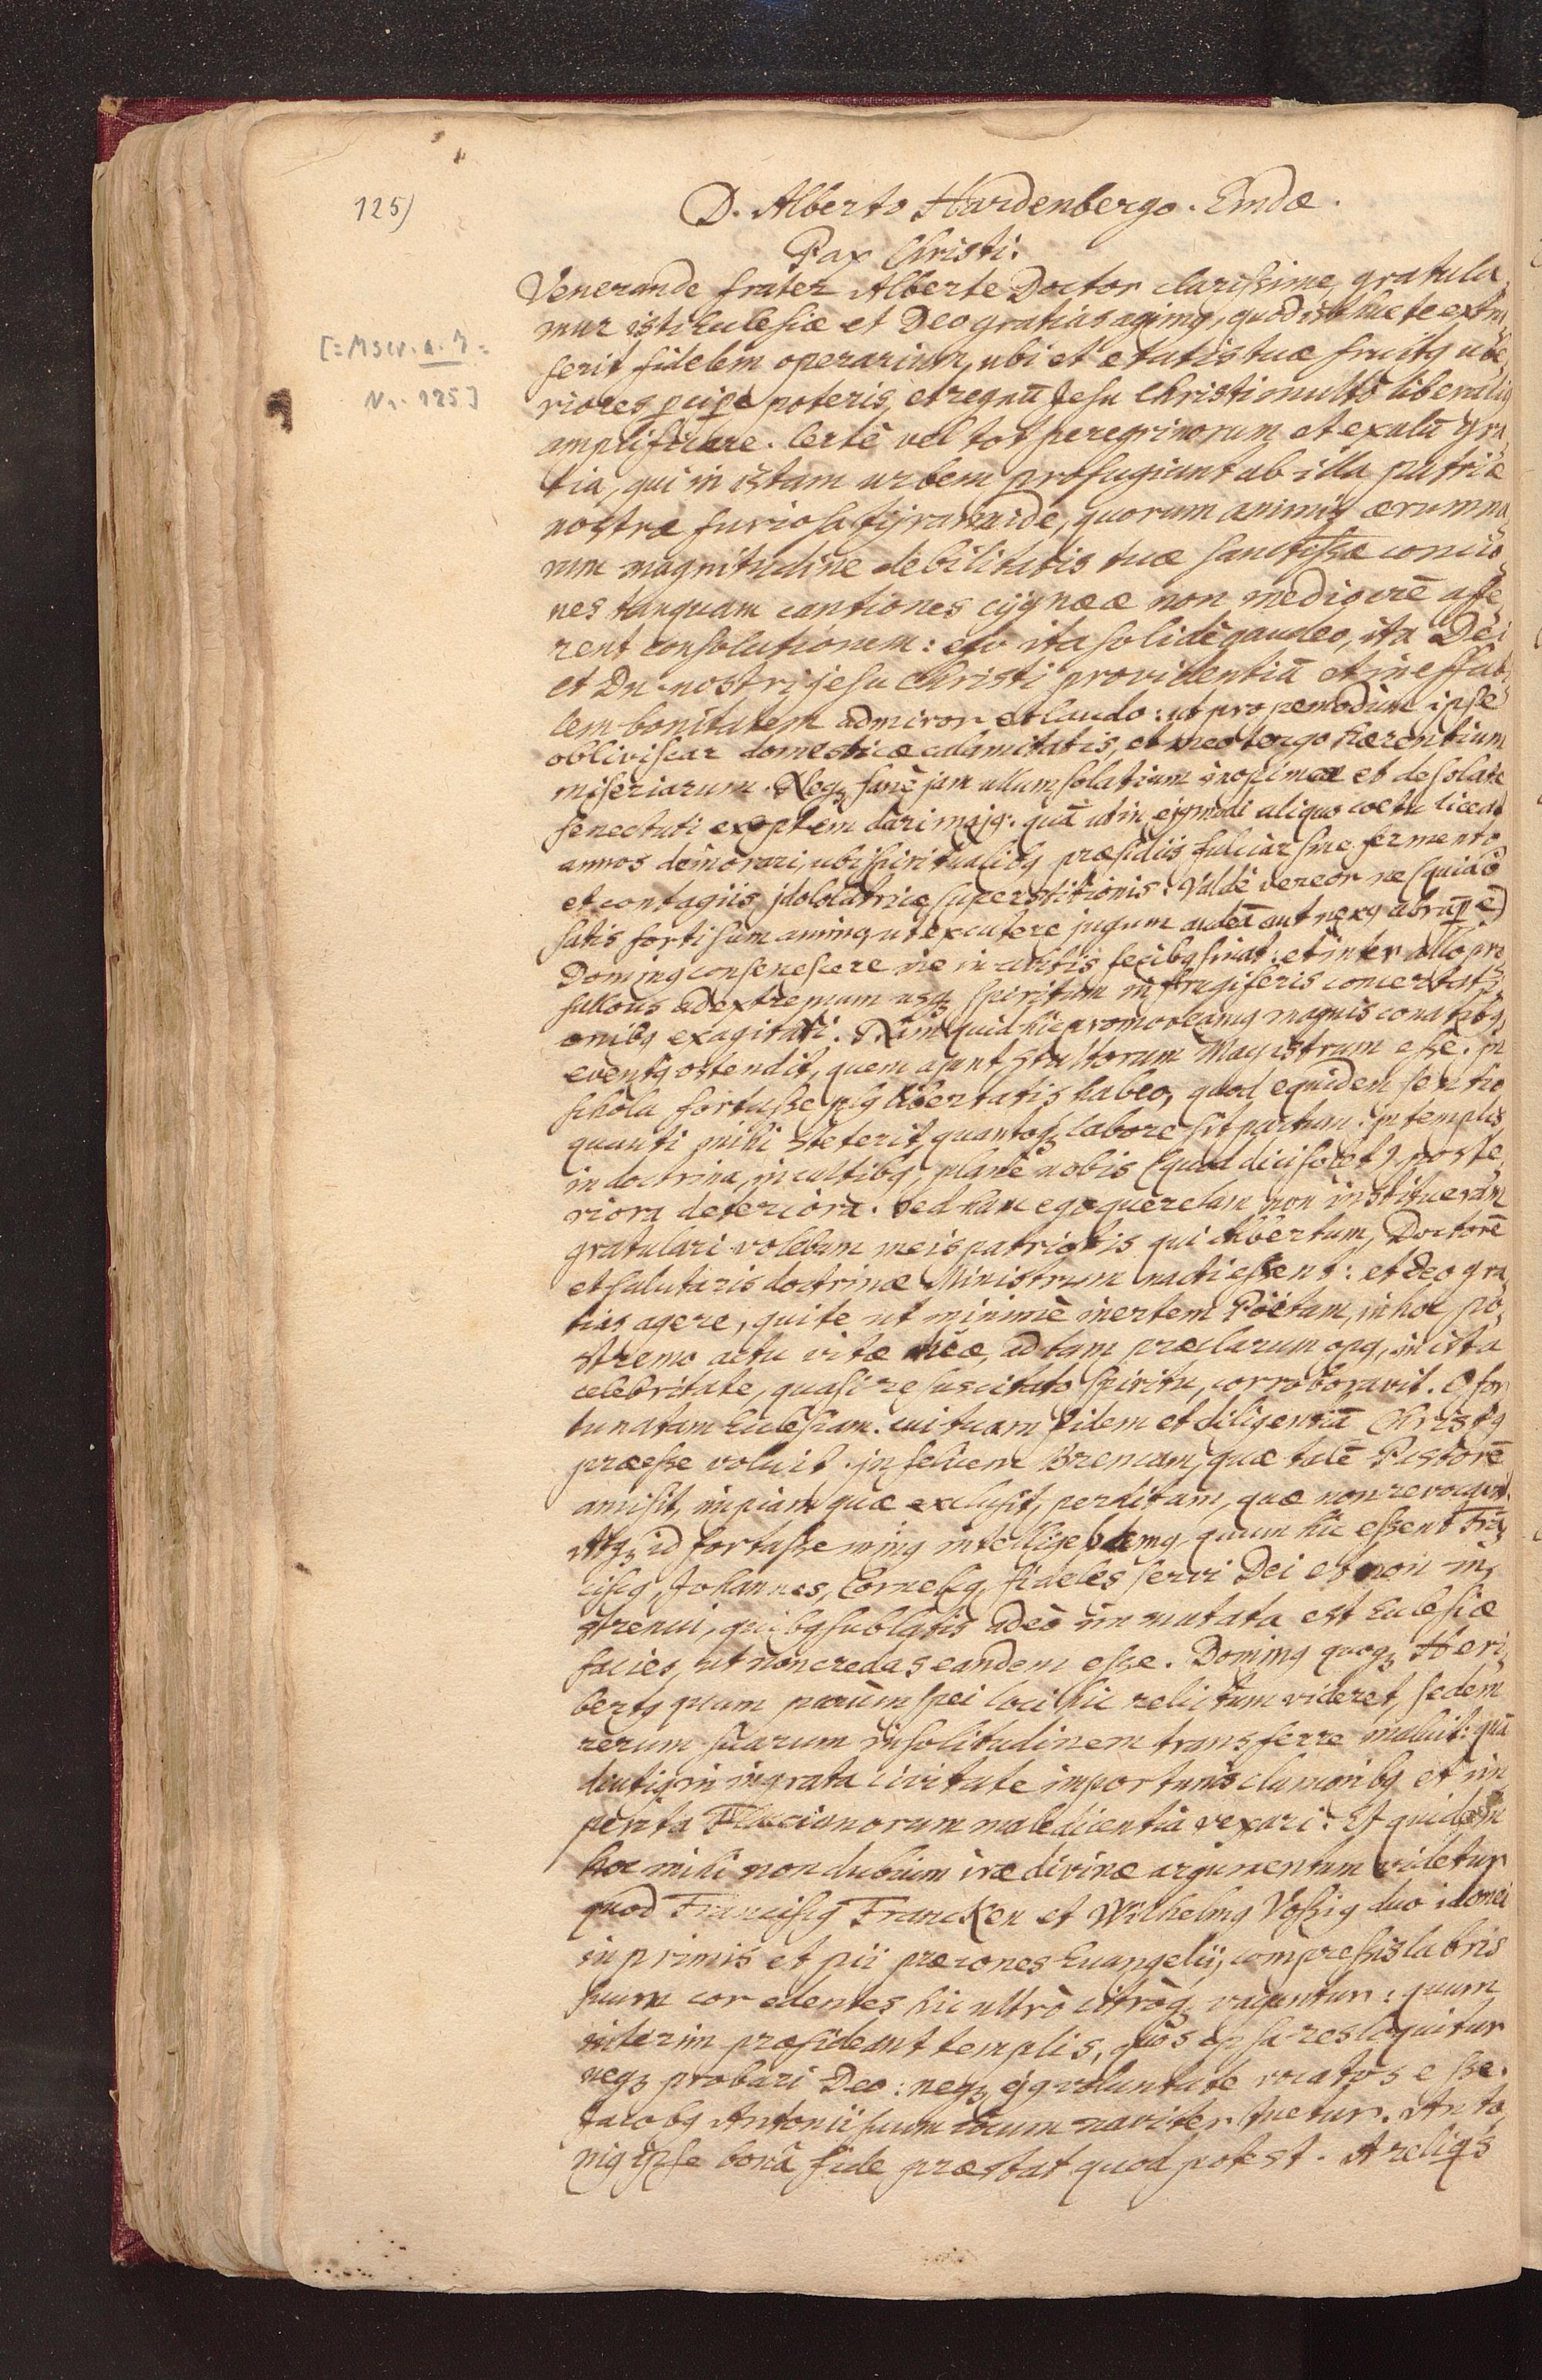 125)
D. Alberto Hardenbergo. Emdæ.
Pax Christi.
[= Mscr. a. 7 =
Nr. 125]
Venerande frater Alberte Doctor clarissime, gratula,
mur isti Ecclesiæ et Deo gratias agimus, quòd isthuc te extru,
serit fidelem operarium, ubi et ætatis tuæ fructus ube,
riores percipere poteris, et regnū Jesu Christi multò liberalius
amplificare. Certè vel tot peregrinorum et exulū gra,
tia, qui in istam urbem profugiunt ab illa patriæ
nostræ furiosa tyrannide, quorum animis ærumna,
rum magnitudine debilitatis tuæ sanctissæ concio,
nes tanquam cantiones cygnææ non mediocrē affe,
rent consolationem: ego ita solidè gaudeo, ita Dei
et Dn. nostri Jesu Christi providentiā et ineffabi,
lem bonitatem admiror et laudo: ut propemodum ipse
obliviscar domesticæ calamitatis, et meo tergo hærentium
miseriarum. Neq; sanè jam ullum solatium et desolatæ
senectuti exoptem dari majus: quā ut in ejusmodi aliquo coetu liceat
annos demorari, ubi spiritualibus præsidiis fulciar sine fermento
et contagiis idololatricæ superstitionis. Valdè vereor ne (quia nō
satis forti sum animo, ut excutere jugum audeā aut nexus abrumpere)
Dominus consenescere me in multis fecibus sinat: et inter
ad extremum usq; spiritum infrugiferis concertati,
onibus exagitari. Nam quid hic promoveamus magnis conatibus,
eventus ostendit, quem ajunt stultorum Magistrum esse. In
schola fortasse plus libertatis habeo, quod equidem sentio
quanti mihi steterit, quantoq; labore sit partum: in templis,
in doctrina, in cultibus, planè nobis (quod dici solet) poste,
riora deteriora. Sed hanc ego querelam non institueram
gratulari volebam meis patriotis qui Albertum, Doctorē
et salutaris doctrinæ Ministrum nacti essent: et Deo gra,
tias agere, qui te ut minimè inertem Poëtam, in hoc po,
stremo actu vitæ ad tam præclarum opus, in ista
celebritate, quasi resuscitato spiritu, corroboravit. O for
tunatam Ecclesiam, cui tuam fidem et diligentiā Christus
præesse voluit. infelicem Bremam, quæ talē Pastorē
amisit, impiam quæ exclusit, perditam, quæ non revocavit.
Atq; id fortasse minus intelligebamus, quum hic essent Frā,
ciscus, Johannes, Cornelius, fideles servi Dei et non in,
strenui, quibus sublatis adeò immutata est Ecclesiæ
facies, ut non credas eandem esse. Dominus quoq; Heri,
bertus quum parùm spei loci hic relictum videret, sedem
rerum suarum in solitudinem transferre maluit: quā
diutius in ingrata civitate importunis clamoribus et im
perita Flacianorum maledicentiâ vexari. Et quidem
hoc mihi non dubium iræ divinæ argumentum videtur
quod Franciscus Francken et Wilhelmus Vossius duo idonei
in primis et pii præcones Euangelii, compressis labris
suum cor edentes hic ultrò citròq; vagantur: quum
interim præsideant templis, quos ipsa res loquitur
neq; probari Deo: neq; ejus voluntate vocatos esse.
Jacobus Antonii suum locum naviter tuetur. Anto,
nius ipse bonâ fide præstat quod potest. A reliquis